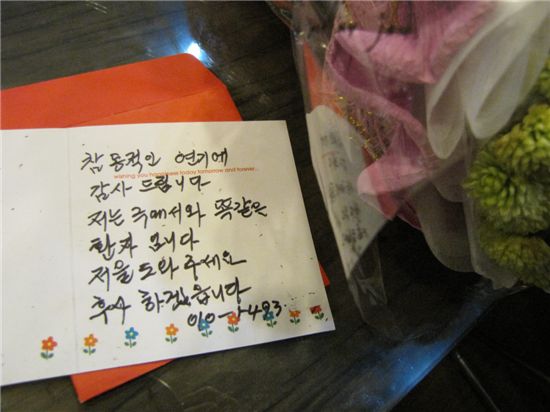 참 동적인 연기에
wishing you happiness today tomorrow and forever...
감사 드립니다
저는 극에서와 똑같은
환자 입니다
저를 도와 주세요
후사 하겠습니다
010-